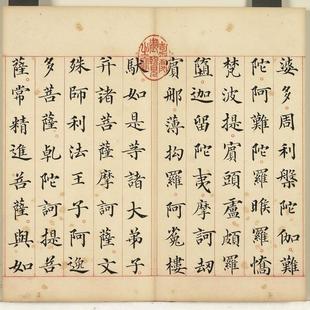 婆多周利槃陀伽難
陀阿難陀羅睺羅憍
梵波提賓頭盧頗羅
墮迦留陀夷摩訶劫
賓那薄拘羅阿㝹樓
馱如是等諸大弟子
并諸菩薩摩訶薩文
殊師利法王子阿逸
多菩薩乹陀訶提菩
薩常精進菩薩與如